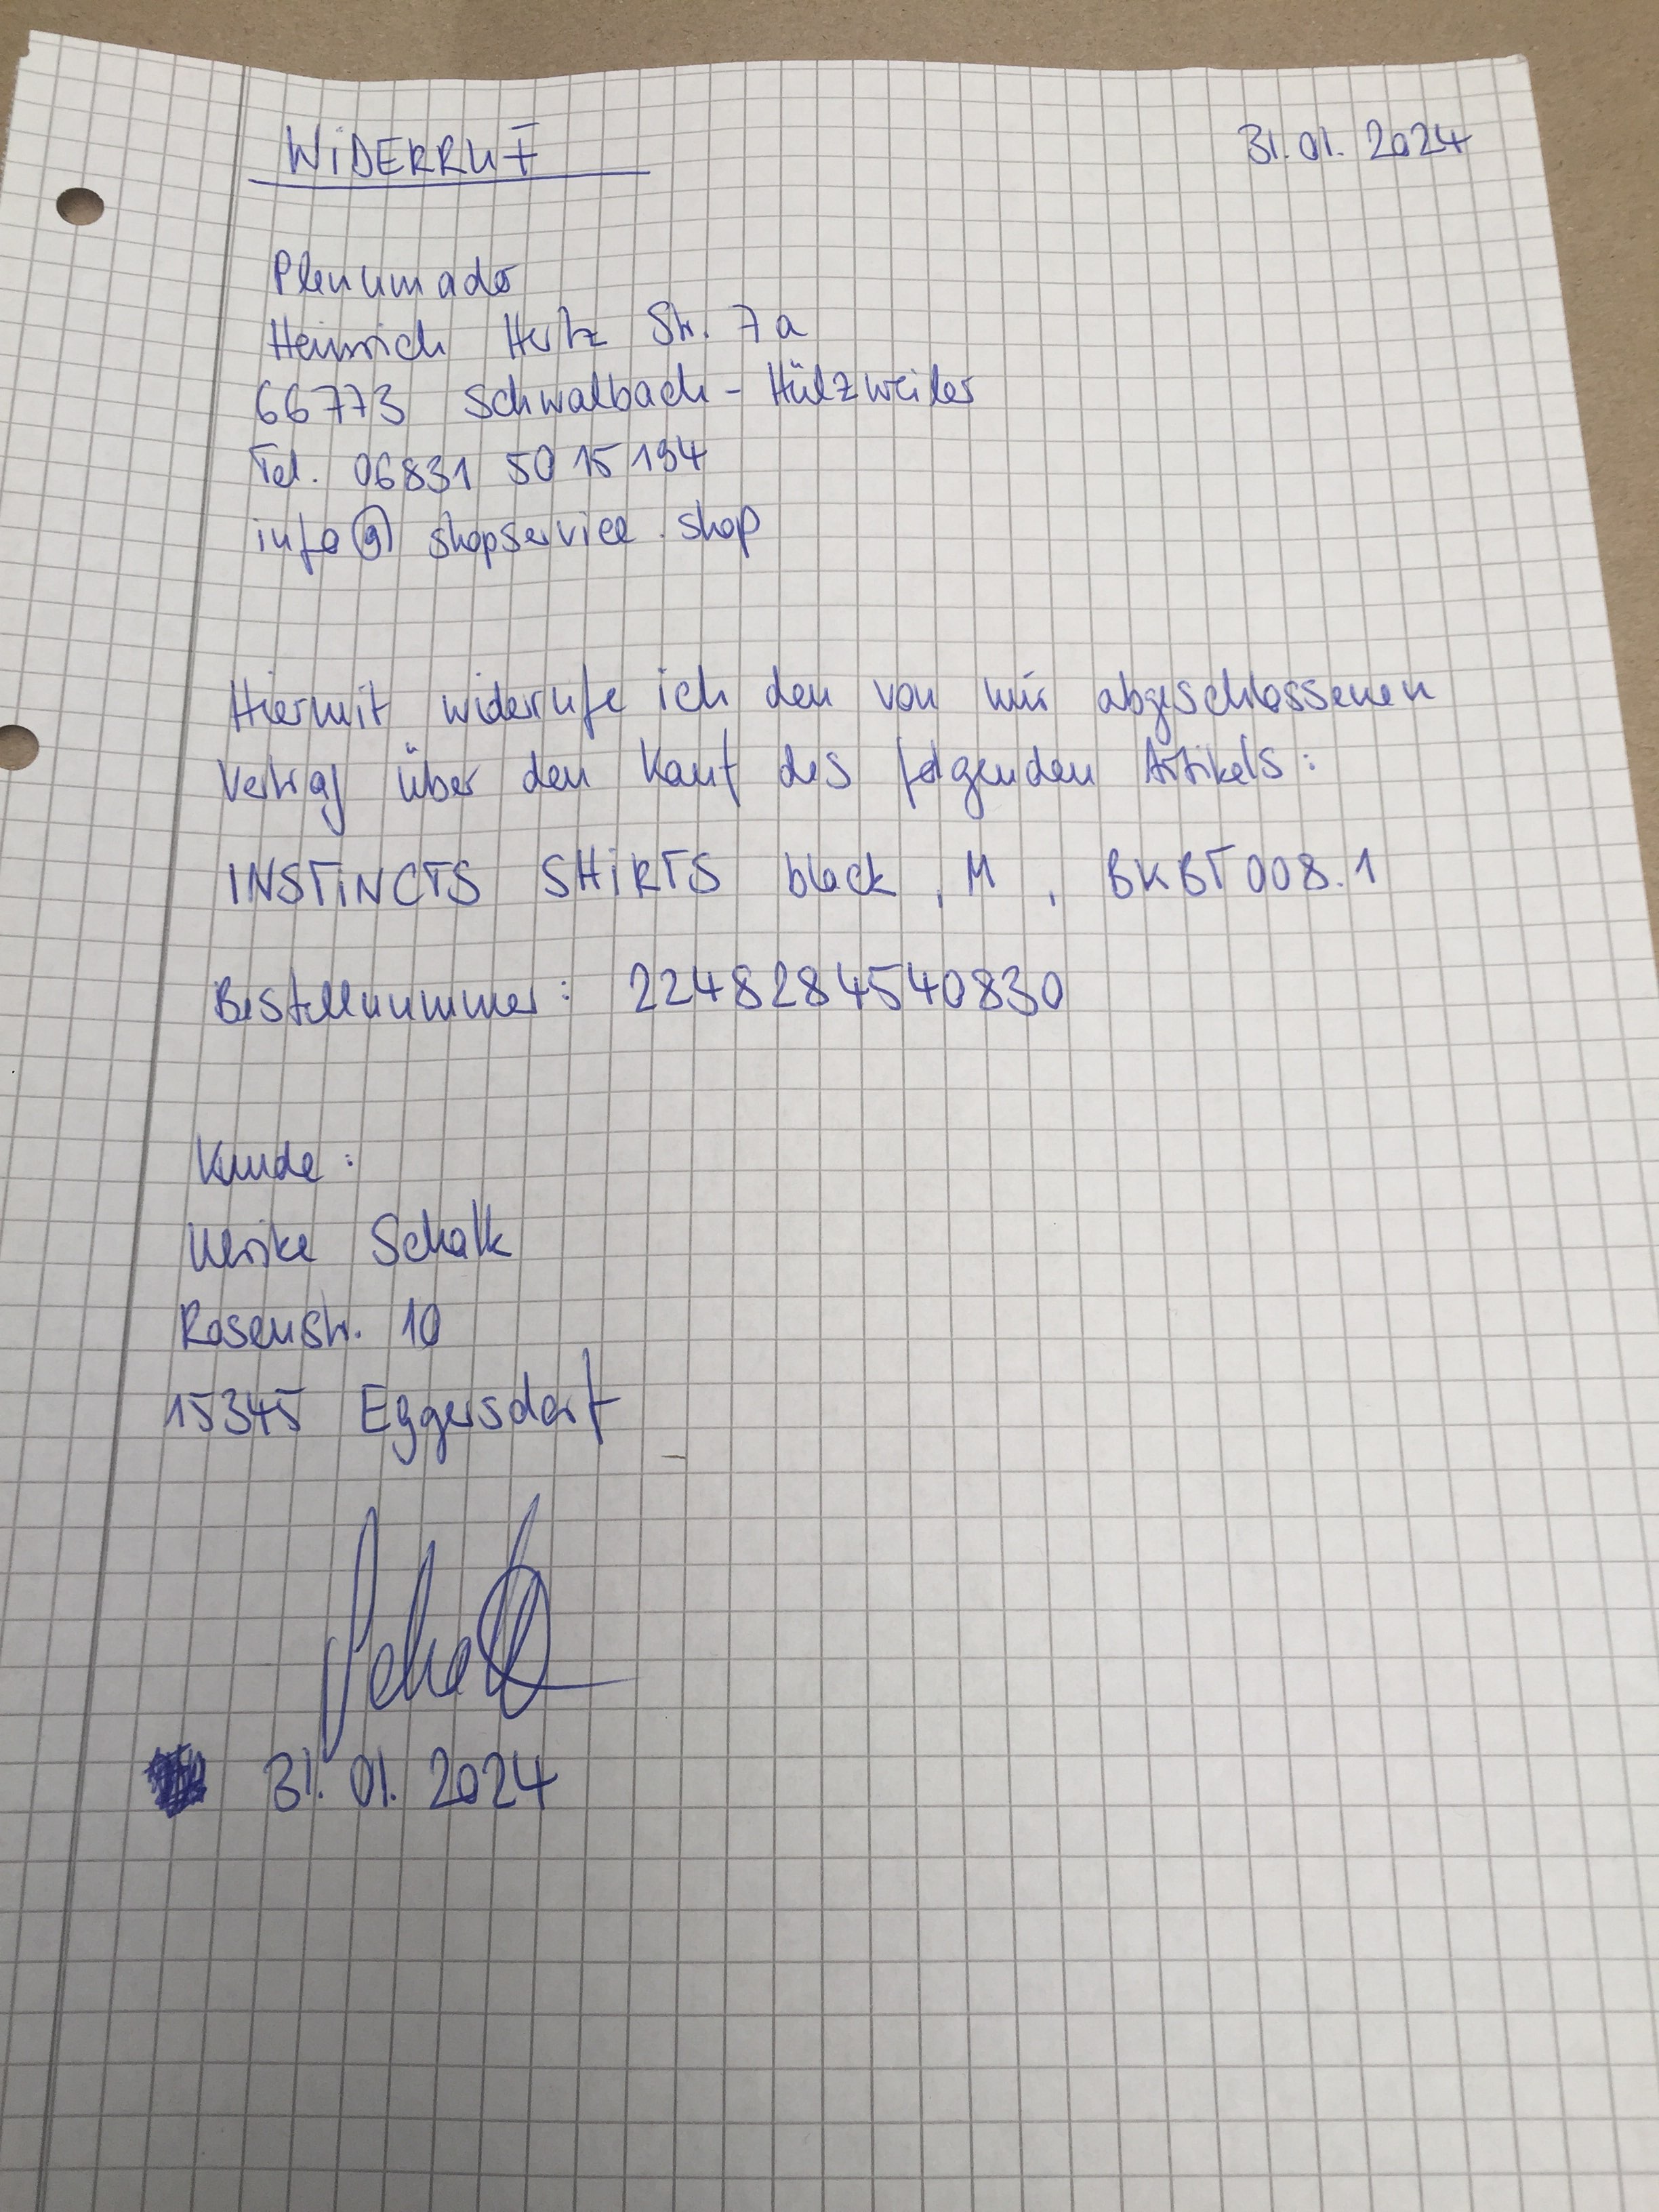 WiDERRUF
31.01.2024
Plenumado
Heinrich Hertz Str. 7a
66773 Schwalbach - Hülzweiler
Tel. 06831 5015194
info@shopservice.shop
Hiermit widerrufe ich den von mir abgeschlossenen
Vertrag über den Kauf des folgenden Artikels:
INSTiNCTS SHiRTS black, M, BKBT008.1
Bestellnummer: 2248284540830
Kunde:
Ulrike Schalk
Rosenstr. 10
15345 Eggersdorf
Schalk
31.01.2024